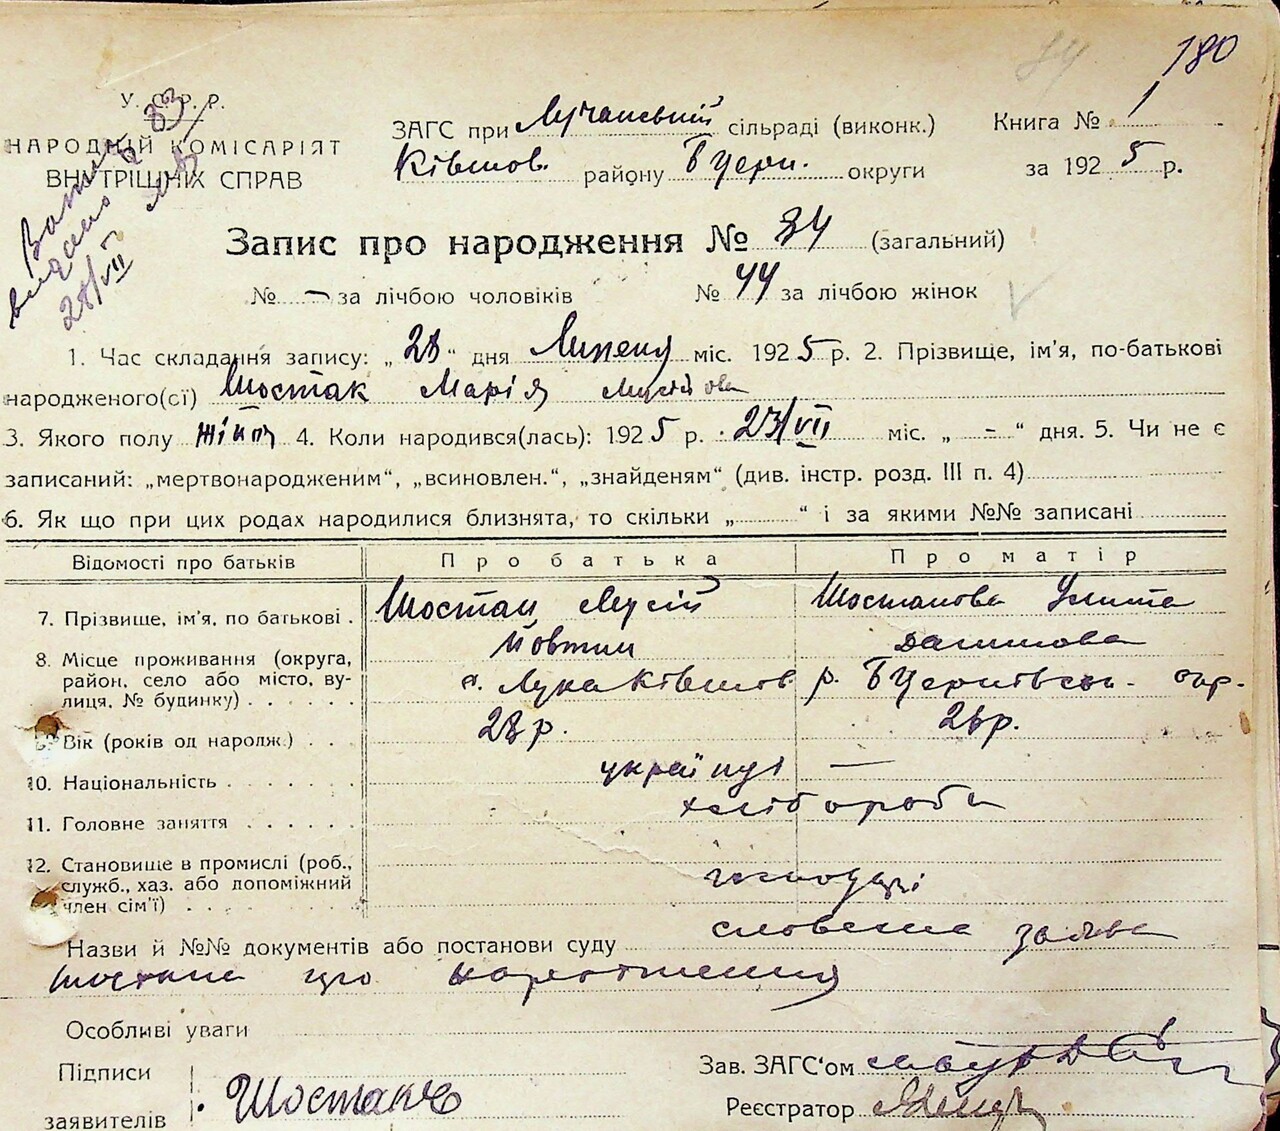 84 180
У. С. Р. Р.
НАРОДНІЙ КОМІСАРІЯТ
ВНУТРІШНІХ СПРАВ
видано
28/VII
ЗАГС при Лучанській сільраді (виконк.) Книга № 1
Ківшов. району БЦерк. округи за 1925 р.
Запис про народження № 84 (загальний)
№ – за лічбою чоловіків № 44 за лічбою жінок
1. Час складання запису: „28“ дня Липеня міс. 1925 р. 2. Прізвище, ім'я, по-батькові
народженого(сї) Шостак Марія Мусійова
3. Якого полу жіноч 4. Коли народився(лась): 1925 р. 23/VII міс. „ - “ дня. 5. Чи не є
записаний: „мертвонародженим“, „всиновлен.“, „знайденям“ (див. інстр. розд. III п. 4)
6. Як що при цих родах народилися близнята, то скільки „ “ і за якими №№ записані
Відомості про батьків Про батька Про матір
7. Прізвище, ім'я, по батькові . Шостак Мусій Йовтих Шостакова Улита Данилова
8. Місце проживання (округа, район, село або місто, вулиця, № будинку) . . . . . . Лука Ківшов р. БЦерківськ. окр.
9. Вік (років од народж.) . . . 28 р. 26 р.
10. Національність . . . . . . українці —
11. Головне заняття . . . . . . хлібороби
12. Становище в промислі (роб., служб., хаз. або допоміжний член сім'ї) . . . . . . господарі
Назви й №№ документів або постанови суду словесна заява
Шостака про народження
Особливі уваги
Підписи
заявителів Шостак
Зав. ЗАГС'ом
Реєстратор